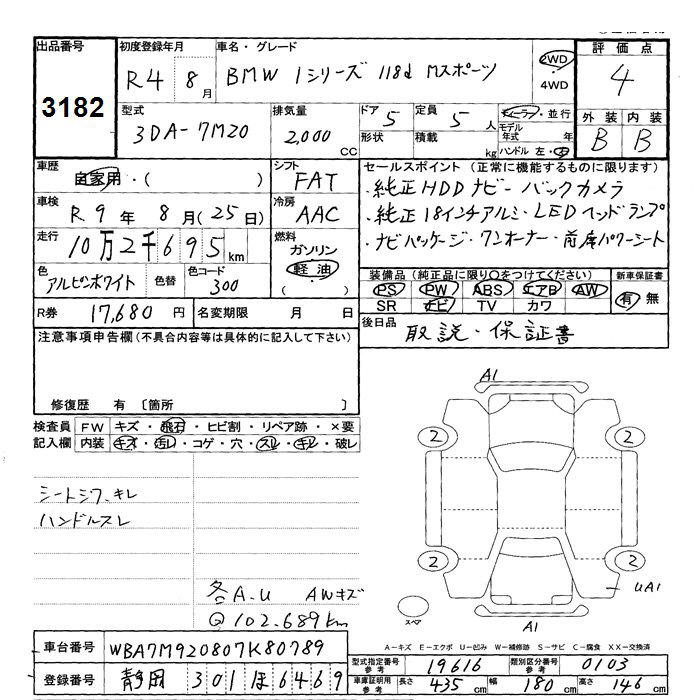 出品番号 初度登録年月 車名・グレード 評価点
3182 R4 8月 BMW 1シリーズ 118d Mスポーツ 2WD 4WD 4
型式 排気量 ドア 5 定員 5人 ・並行 外装 内装
3DA-7M20 2,000 CC 形状 積載 kg モデル年式 年 ハンドル 左・右 B B
車歴 シフト セールスポイント (正常に機能するものに限ります)
自家用・( ) FAT ・純正HDDナビ・バックカメラ
車検 R9年8月(25日) 冷房 AAC ・純正18インチアルミ・LEDヘッドランプ
走行 10万2千695km 燃料 ガソリン 軽油 ( ) ・ナビパッケージ・ワンオーナー・前席パワーシート
色 アルピンホワイト 色替 色コード 300 装備品 (純正品に限り○をつけてください) 新車保証書
PS PW ABS エアB AW 有 無
SR ナビ TV カワ
R券 17,680円 名変期限 月 日 後日品 取説・保証書
注意事項申告欄(不具合内容等は具体的に記入して下さい)
修復歴 有 〔箇所 〕
検査員 FW キズ・飛石・ヒビ割・リペア跡・×要
記入欄 内装 キズ・汚レ・コゲ・穴・スレ・キレ・破レ
シートシワ、キレ
ハンドルスレ
各A.U AWキズ
Q 102,689km
A1
2 2
2 2
UA1
スペア
A1
A-キズ E-エクボ U-凹み W-補修跡 S-サビ C-腐食 XX-交換済
車台番号 WBA7M920807K80789 型式指定番号 参考 19616 類別区分番号 参考 0103
登録番号 静岡 301 ほ 6469 車庫証明用 参考 長さ 435cm 幅 180cm 高さ 146cm